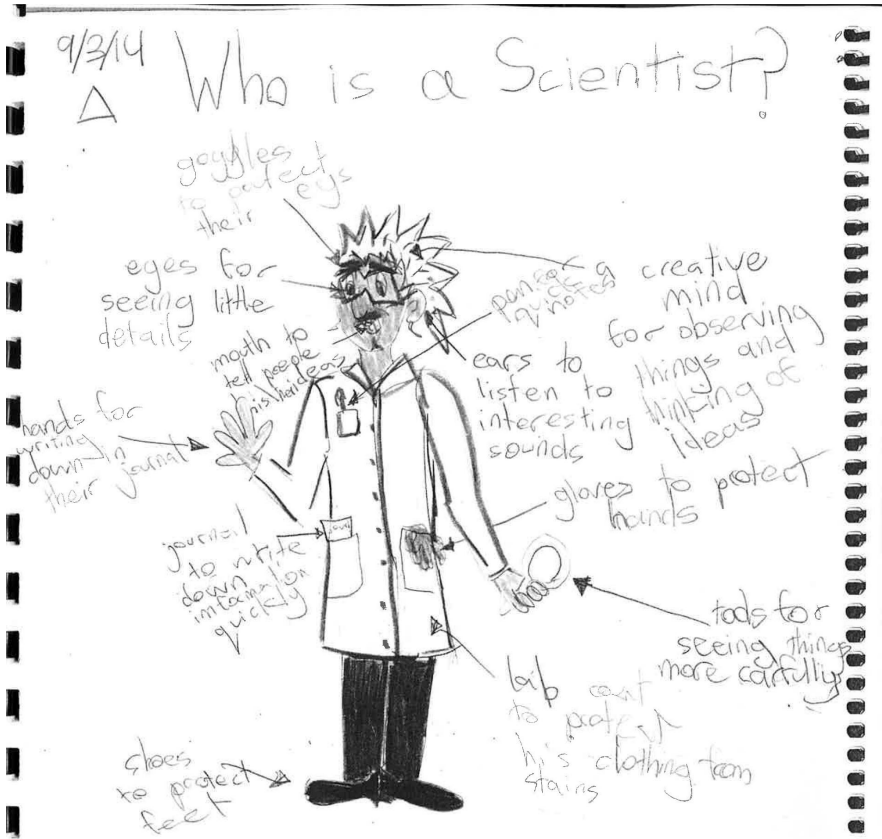 9/3/14
Who is a Scientist?
goggles
to protect
their eys
eyes for
seeing little
details
mouth to
tell people
his/her ideas
quick
notes
a creative
mind
for observing
things and
thinking of
ideas
ears to
listen to
interesting
sounds
hands for
writing
down in
their journal
gloves to protect
hands
journal
to write
down
information
quickly
tools for
seeing things
more carfully
lab coat
to protect
his clothing from
stains
shoes
to protect
feet